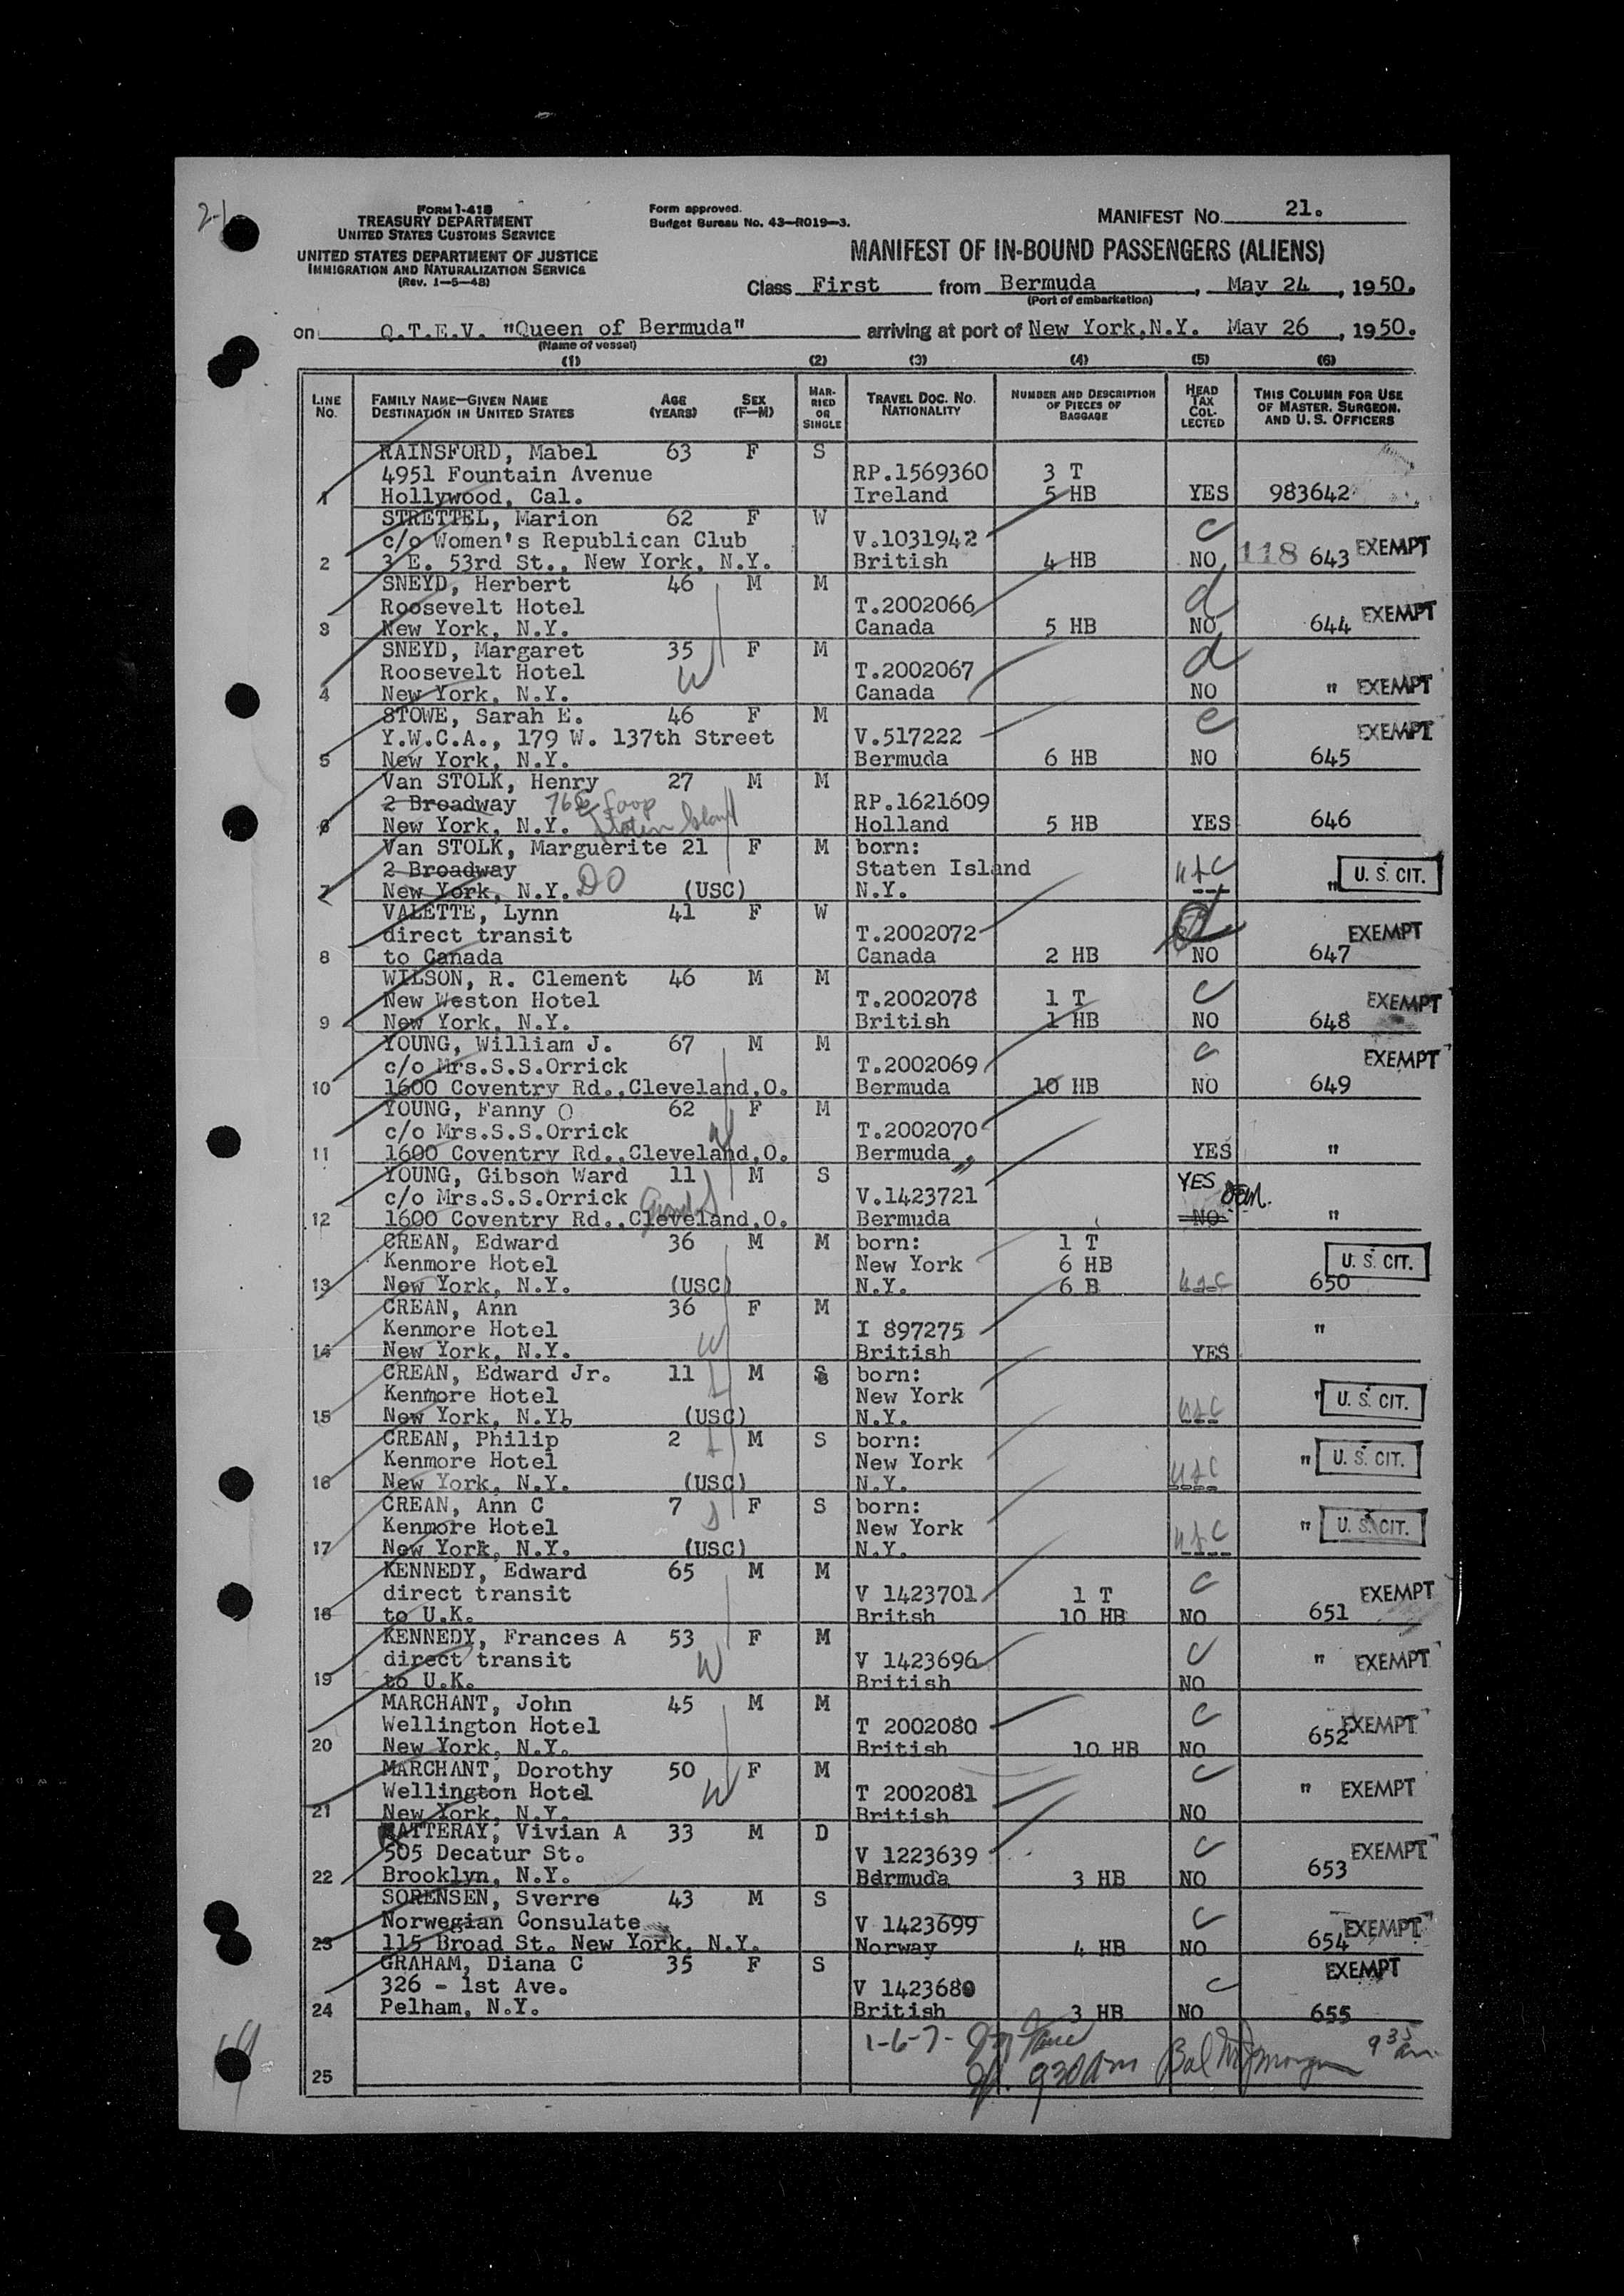 2-1
FORM I-418
TREASURY DEPARTMENT
UNITED STATES CUSTOMS SERVICE
UNITED STATES DEPARTMENT OF JUSTICE
IMMIGRATION AND NATURALIZATION SERVICE
(Rev. 1-5-48)
Form approved.
Budget Bureau No. 43-R019-3.
MANIFEST No. 21.
MANIFEST OF IN-BOUND PASSENGERS (ALIENS)
Class First from Bermuda, May 24, 1950.
(Port of embarkation)
on Q.T.E.V. "Queen of Bermuda" arriving at port of New York,N.Y. May 26, 1950.
(Name of vessel)
(1) (2) (3) (4) (5) (6)
LINE No. FAMILY NAME—GIVEN NAME DESTINATION IN UNITED STATES AGE (YEARS) SEX (F—M) MARRIED OR SINGLE TRAVEL DOC. NO. NATIONALITY NUMBER AND DESCRIPTION OF PIECES OF BAGGAGE HEAD TAX COLLECTED THIS COLUMN FOR USE OF MASTER, SURGEON, AND U. S. OFFICERS
RAINSFORD, Mabel 63 F S
4951 Fountain Avenue RP.1569360 3 T
1 Hollywood, Cal. Ireland 5 HB YES 983642
STRETTEL, Marion 62 F W c
c/o Women's Republican Club V.1031942
2 3 E. 53rd St., New York, N.Y. British 4 HB NO 118 643 EXEMPT
SNEYD, Herbert 46 M M d
Roosevelt Hotel T.2002066
3 New York, N.Y. Canada 5 HB NO 644 EXEMPT
SNEYD, Margaret 35 F M d
Roosevelt Hotel W T.2002067
4 New York, N.Y. Canada NO " EXEMPT
STOWE, Sarah E. 46 F M e
Y.W.C.A., 179 W. 137th Street V.517222 EXEMPT
5 New York, N.Y. Bermuda 6 HB NO 645
Van STOLK, Henry 27 M M
2 Broadway RP.1621609
6 New York, N.Y. Staten Island Holland 5 HB YES 646
Van STOLK, Marguerite 21 F M born:
2 Broadway Staten Island usc U. S. CIT.
7 New York, N.Y. DO (USC) N.Y. --- "
VALETTE, Lynn 41 F W d
direct transit T.2002072 EXEMPT
8 to Canada Canada 2 HB NO 647
WILSON, R. Clement 46 M M c
New Weston Hotel T.2002078 1 T EXEMPT
9 New York, N.Y. British 1 HB NO 648
YOUNG, William J. 67 M M c
c/o Mrs.S.S.Orrick T.2002069 EXEMPT
10 1600 Coventry Rd.,Cleveland,O. Bermuda 10 HB NO 649
YOUNG, Fanny O 62 F M
c/o Mrs.S.S.Orrick W T.2002070
11 1600 Coventry Rd.,Cleveland,O. Bermuda " YES "
YOUNG, Gibson Ward 11 M S YES
c/o Mrs.S.S.Orrick V.1423721
12 1600 Coventry Rd.,Cleveland,O. Bermuda NO "
CREAN, Edward 36 M M born: 1 T
Kenmore Hotel New York 6 HB U. S. CIT.
13 New York, N.Y. (USC) N.Y. 6 B usc 650
CREAN, Ann 36 F M
Kenmore Hotel W I 897275 "
14 New York, N.Y. British YES
CREAN, Edward Jr. 11 M S born:
Kenmore Hotel New York usc " U. S. CIT.
15 New York, N.Yb (USC) N.Y. ---
CREAN, Philip 2 M S born:
Kenmore Hotel New York usc " U. S. CIT.
16 New York, N.Y. (USC) N.Y. ----
CREAN, Ann C 7 F S born:
Kenmore Hotel New York usc " U. S. CIT.
17 New York, N.Y. (USC) N.Y. ----
KENNEDY, Edward 65 M M c
direct transit V 1423701 1 T EXEMPT
18 to U.K. Britsh 10 HB NO 651
KENNEDY, Frances A 53 F M c
direct transit W V 1423696 " EXEMPT
19 to U.K. British NO
MARCHANT, John 45 M M c
Wellington Hotel T 2002080 EXEMPT
20 New York, N.Y. British 10 HB NO 652
MARCHANT, Dorothy 50 F M c
Wellington Hotel W T 2002081 " EXEMPT
21 New York, N.Y. British NO
MATTERAY, Vivian A 33 M D c
505 Decatur St. V 1223639 EXEMPT
22 Brooklyn, N.Y. Bermuda 3 HB NO 653
SORENSEN, Sverre 43 M S c
Norwegian Consulate V 1423699 EXEMPT
23 115 Broad St. New York, N.Y. Norway 4 HB NO 654
GRAHAM, Diana C 35 F S EXEMPT
326 - 1st Ave. V 1423680 c
24 Pelham, N.Y. British 3 HB NO 655
1-6-7- 9 35 am
25 930 Am